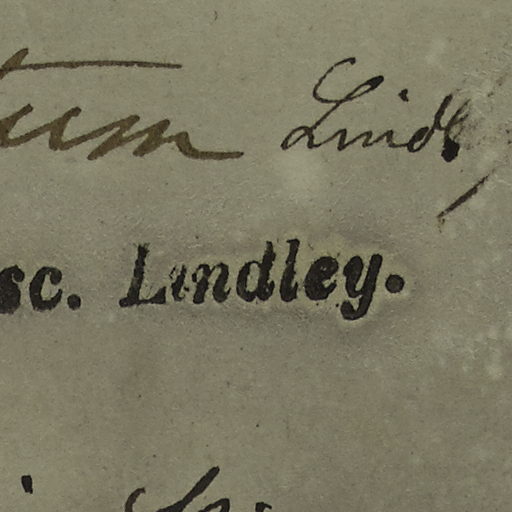 tum Lindl
sc. Lindley.